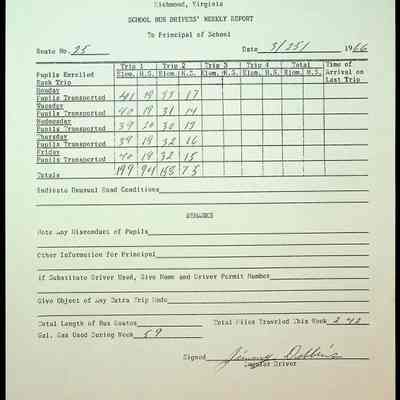 Richmond, Virginia
SCHOOL BUS DRIVERS' WEEKLY REPORT
To Principal of School
Route No. 25 Date 3/25/ 1966
Trip 1 Trip 2 Trip 3 Trip 4 Total Time of
Pupils Enrolled Elem. H.S. Elem. H.S. Elem. H.S. Elem. H.S. Elem. H.S. Arrival on
Each Trip Last Trip
Monday
Pupils Transported 41 19 33 17
Tuesday
Pupils Transported 40 19 31 14
Wednesday
Pupils Transported 39 20 30 13
Thursday
Pupils Transported 39 19 32 16
Friday
Pupils Transported 40 19 32 15
Totals 199 94 158 75
Indicate Unusual Road Conditions
REMARKS
Note Any Misconduct of Pupils
Other Information for Principal
If Substitute Driver Used, Give Name and Driver Permit Number
Give Object of Any Extra Trip Made
Total Length of Bus Routes Total Miles Traveled This Week 242
Gal. Gas Used During Week 59
Signed Jimmy Dobbins
Regular Driver